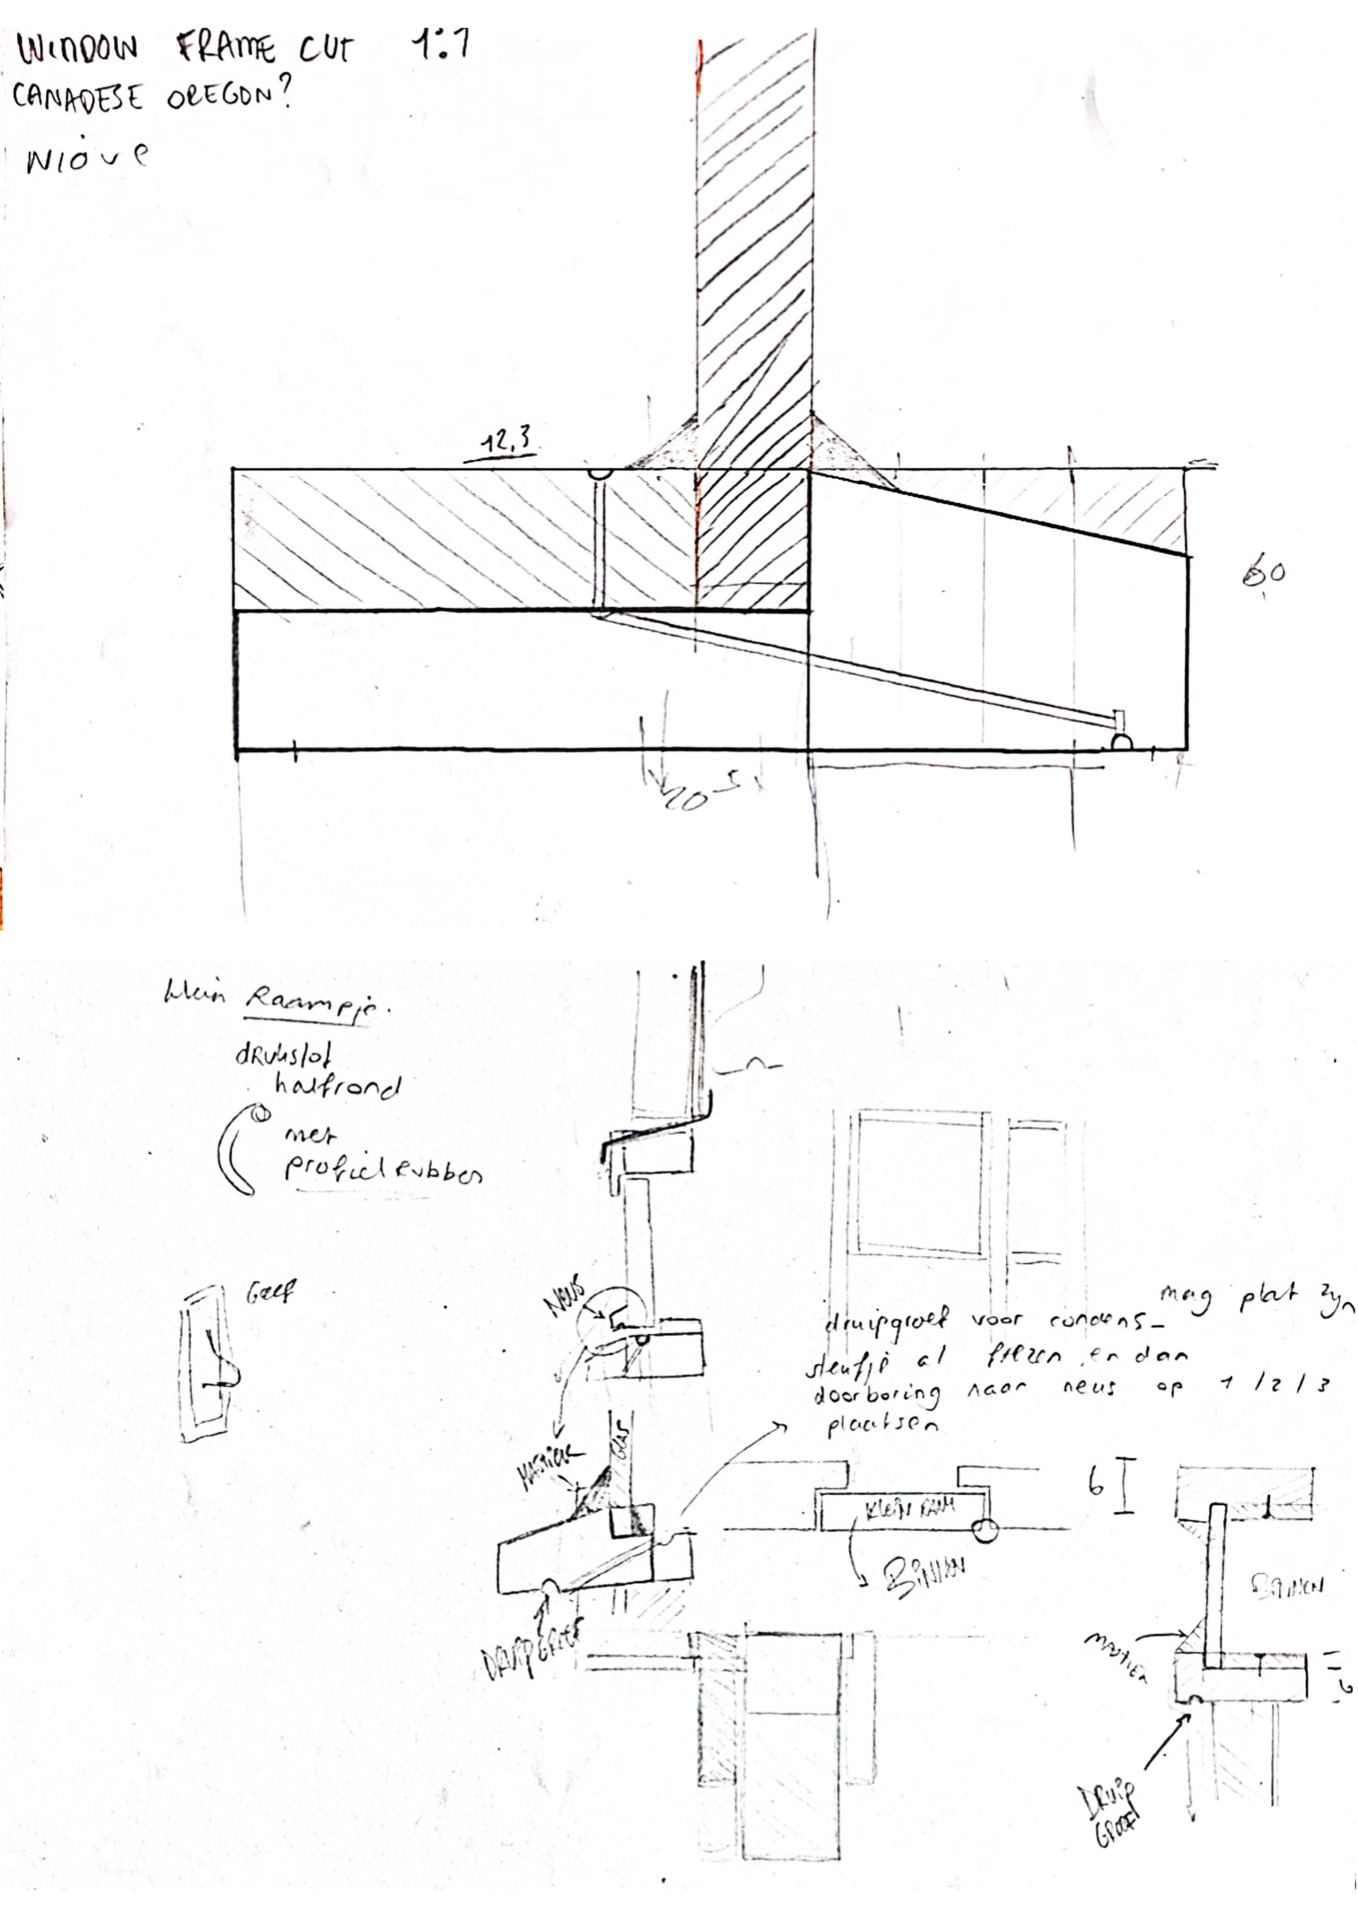 WINDOW FRAME CUT 1:1
CANADESE OREGON?
NIOVE
12,3
60
20 5
Klein Raampje.
drukslot
halfrond
met
profiel rubber
NEUS
mag plat zyn
druipgroef voor condens-
sleufje al frezen en dan
doorboring naar neus op 1/2/3
plaatsen
MASTIEK
GLAS
6
KLEIN RAAM
BINNEN
BINNEN
DRUIPGROEF
MASTIEK
6
DRUIP
GROEF